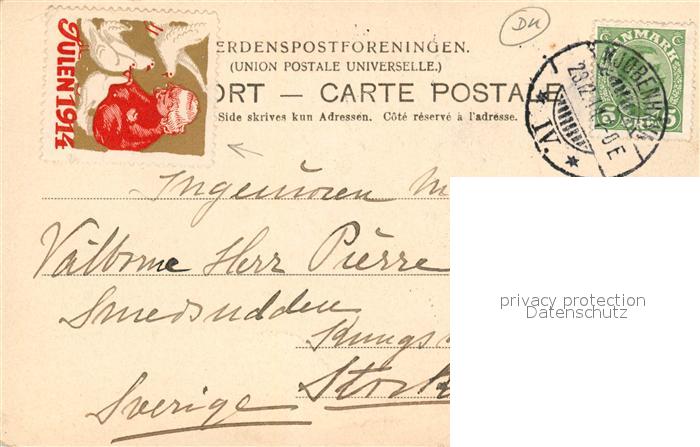 JULEN 1914
DU
ERDENSPOSTFORENINGEN.
(UNION POSTALE UNIVERSELLE.)
ORT — CARTE POSTALE
Side skrives kun Adressen. Côté réservé à l'adresse.
DANMARK
5
KJØBENH
IV.
Ingeniören
Välborne Herr Pierre
Smedsudden
Kungs
Stock
Sverige
privacy protection
Datenschutz